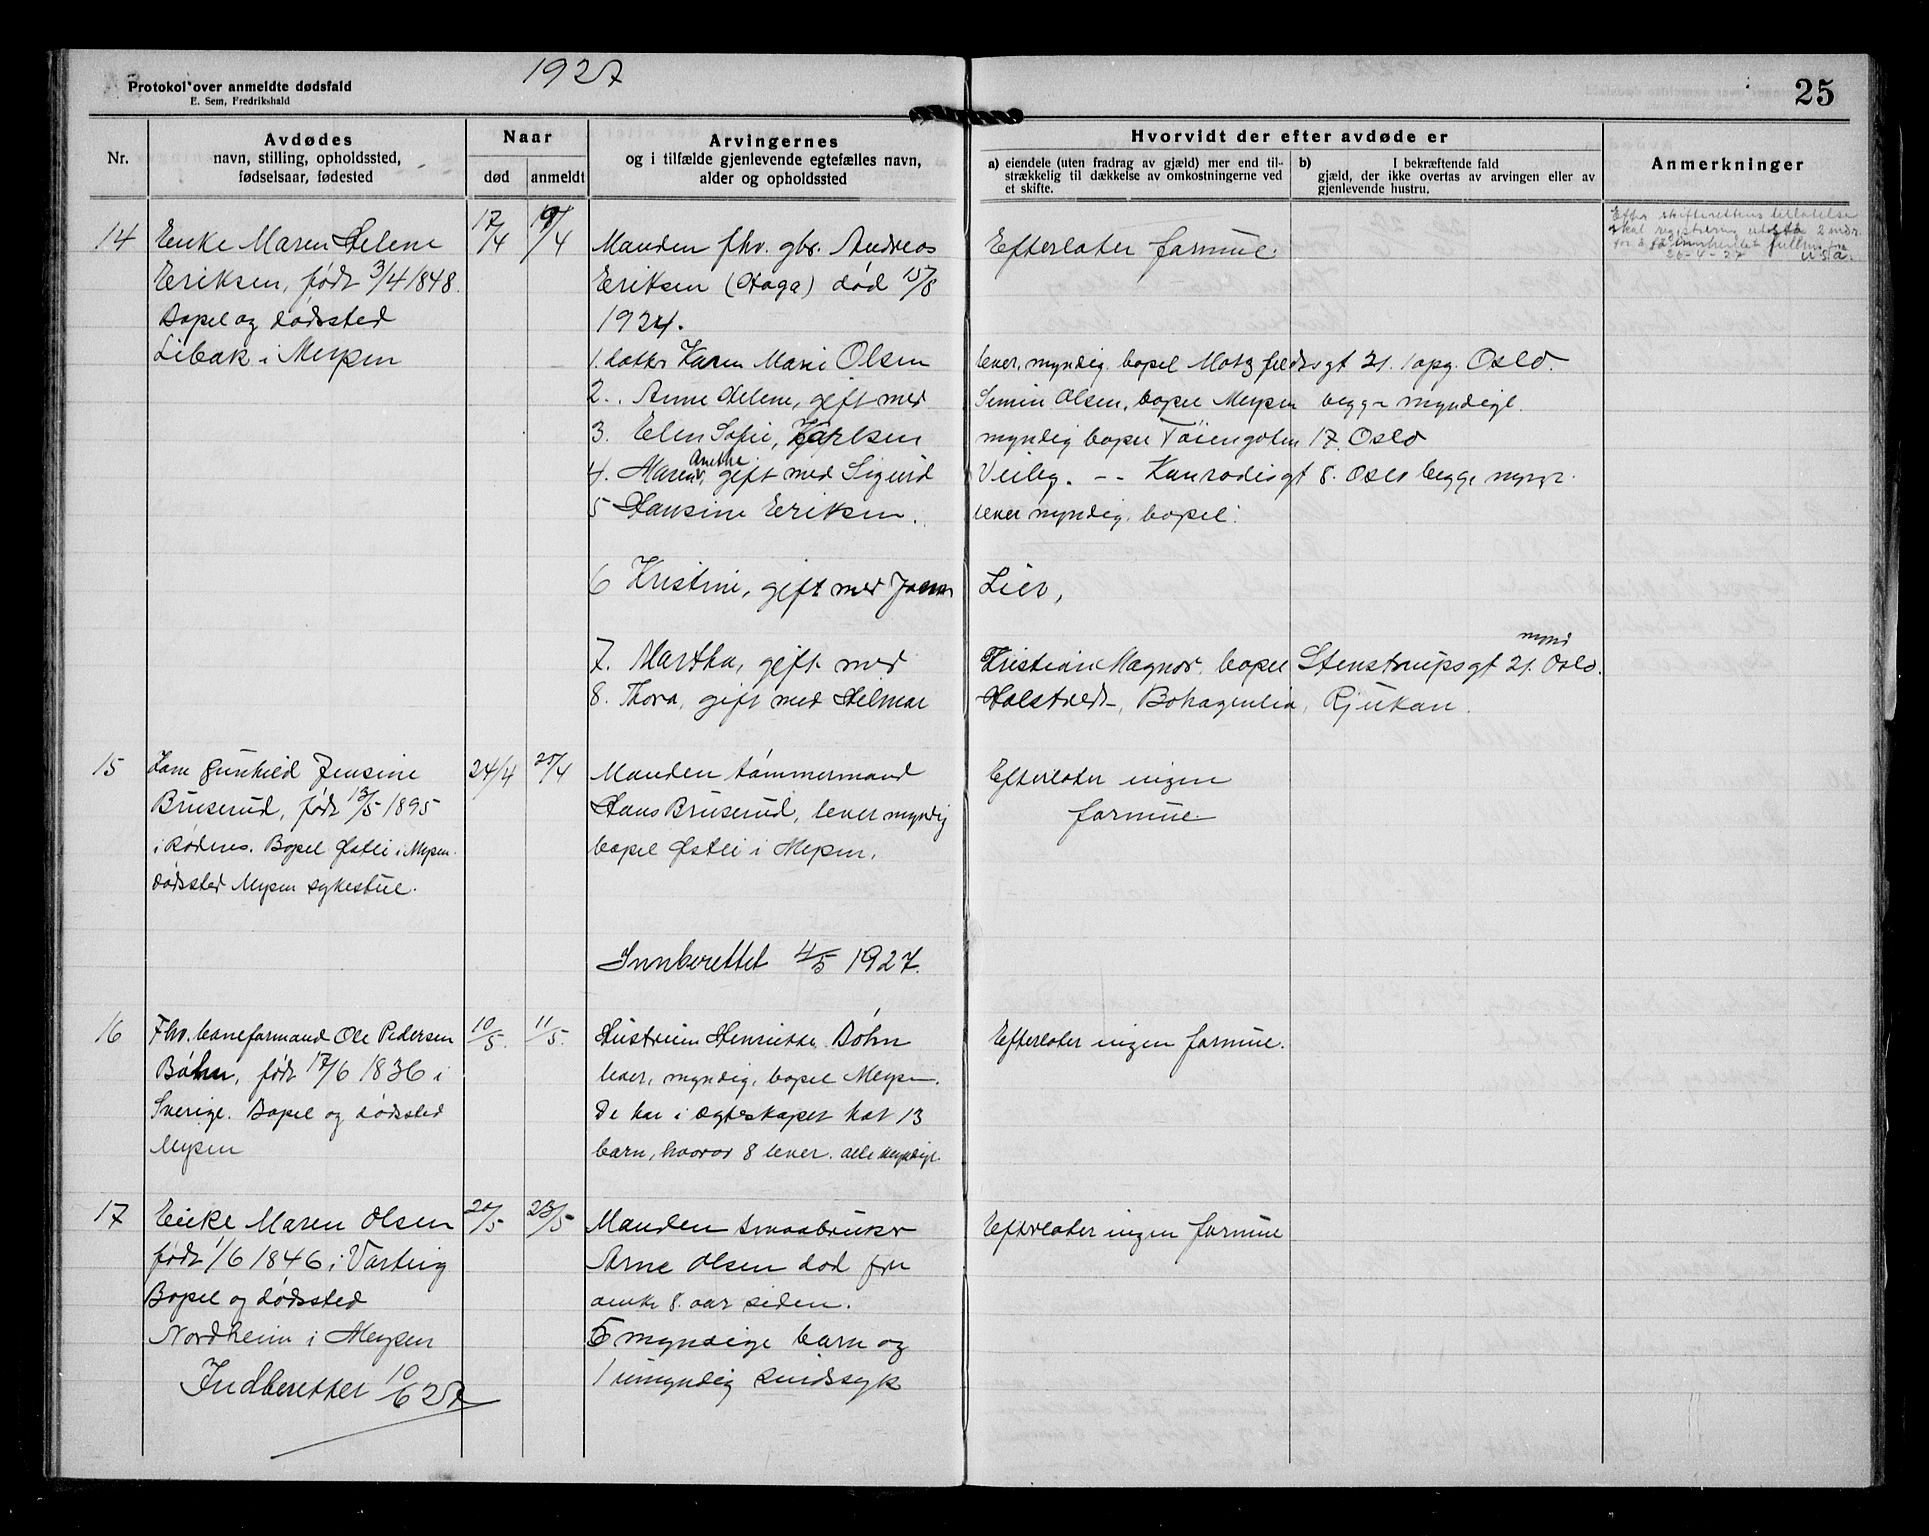 1927
Protokol over anmeldte dødsfald
E. Sem, Fredrikshald
25
Nr.
Avdødes
navn, stilling, opholdssted,
fødselsaar, fødested
Naar
død
anmeldt
Arvingernes
og i tilfælde gjenlevende egtefælles navn,
alder og opholdssted
Hvorvidt der efter avdøde er
a) eiendele (uten fradrag av gjæld) mer end til-
strækkelig til dækkelse av omkostningerne ved
et skifte.
b) I bekræftende fald
gjæld, der ikke overtas av arvingen eller av
gjenlevende hustru.
Anmerkninger
14
Enke Maren Helene
Eriksen, født 3/4 1848.
Bopel og dødssted
Libak i Mysen
17/4
19/4
Manden fhv. gbr. Andreas
Eriksen (Haga) død 15/8
1924.
1. datter Karen Marie Olsen
2. Anne Helene, gift med
3. Elen Sofie, Karlsen
4. Maren Anethe, gift med Sigurd
5 Hansine Eriksen.
6 Kristine, gift med
7. Martha, gift med
8. Thora, gift med Hilmar
Efterlater formue.
lever, myndig, bopel Motzfeldsgt 21. 1 opg. Oslo.
Simin Olsen, bopel Mysen begge myndige.
myndig bopel Tøiengaten 17. Oslo
Veiby. -- Kanradisgt 8. Oslo begge mynd.
lever myndig, bopel.
Lier,
Kristian Magnor, bopel Stenstrupsgt 21. Oslo. mynd
Halstvedt, Bohagenlia, Rjukan.
Efter skifterettens tillatelse
skal registrering utestå 2 mdr.
for å få innhentet fullm. fra
26-4-27 U.S.A.
15
Kone Gunhild Jensine
Bruserud, født 13/5 1895
i Rødenes. Bopel Østli i Mysen.
dødssted Mysen sykestue.
24/4
25/4
Manden tømmermand
Hans Bruserud, lever myndig
bopel Østli i Mysen.
Efterlater ingen
formue.
Innberettet 4/5 1927.
16
Fhv. baneformand Ole Pedersen
Bøhn, født 17/6 1836 i
Sverige. Bopel og dødssted
Mysen
10/5.
11/5.
Hustruen Henriette Bøhn
lever, myndig, bopel Mysen.
De har i ægteskapet hat 13
barn, hvorav 8 lever. alle myndige.
Efterlater ingen formue.
17
Enke Maren Olsen
født 1/6 1846 i Varteig
Bopel og dødssted
Nordheim i Mysen
20/5
23/5
Manden smaabruker
Arne Olsen død for
omkr 8. aar siden.
5 myndige barn og
1 umyndig sindssyk
Efterlater ingen formue
Indberettet 10/6 27